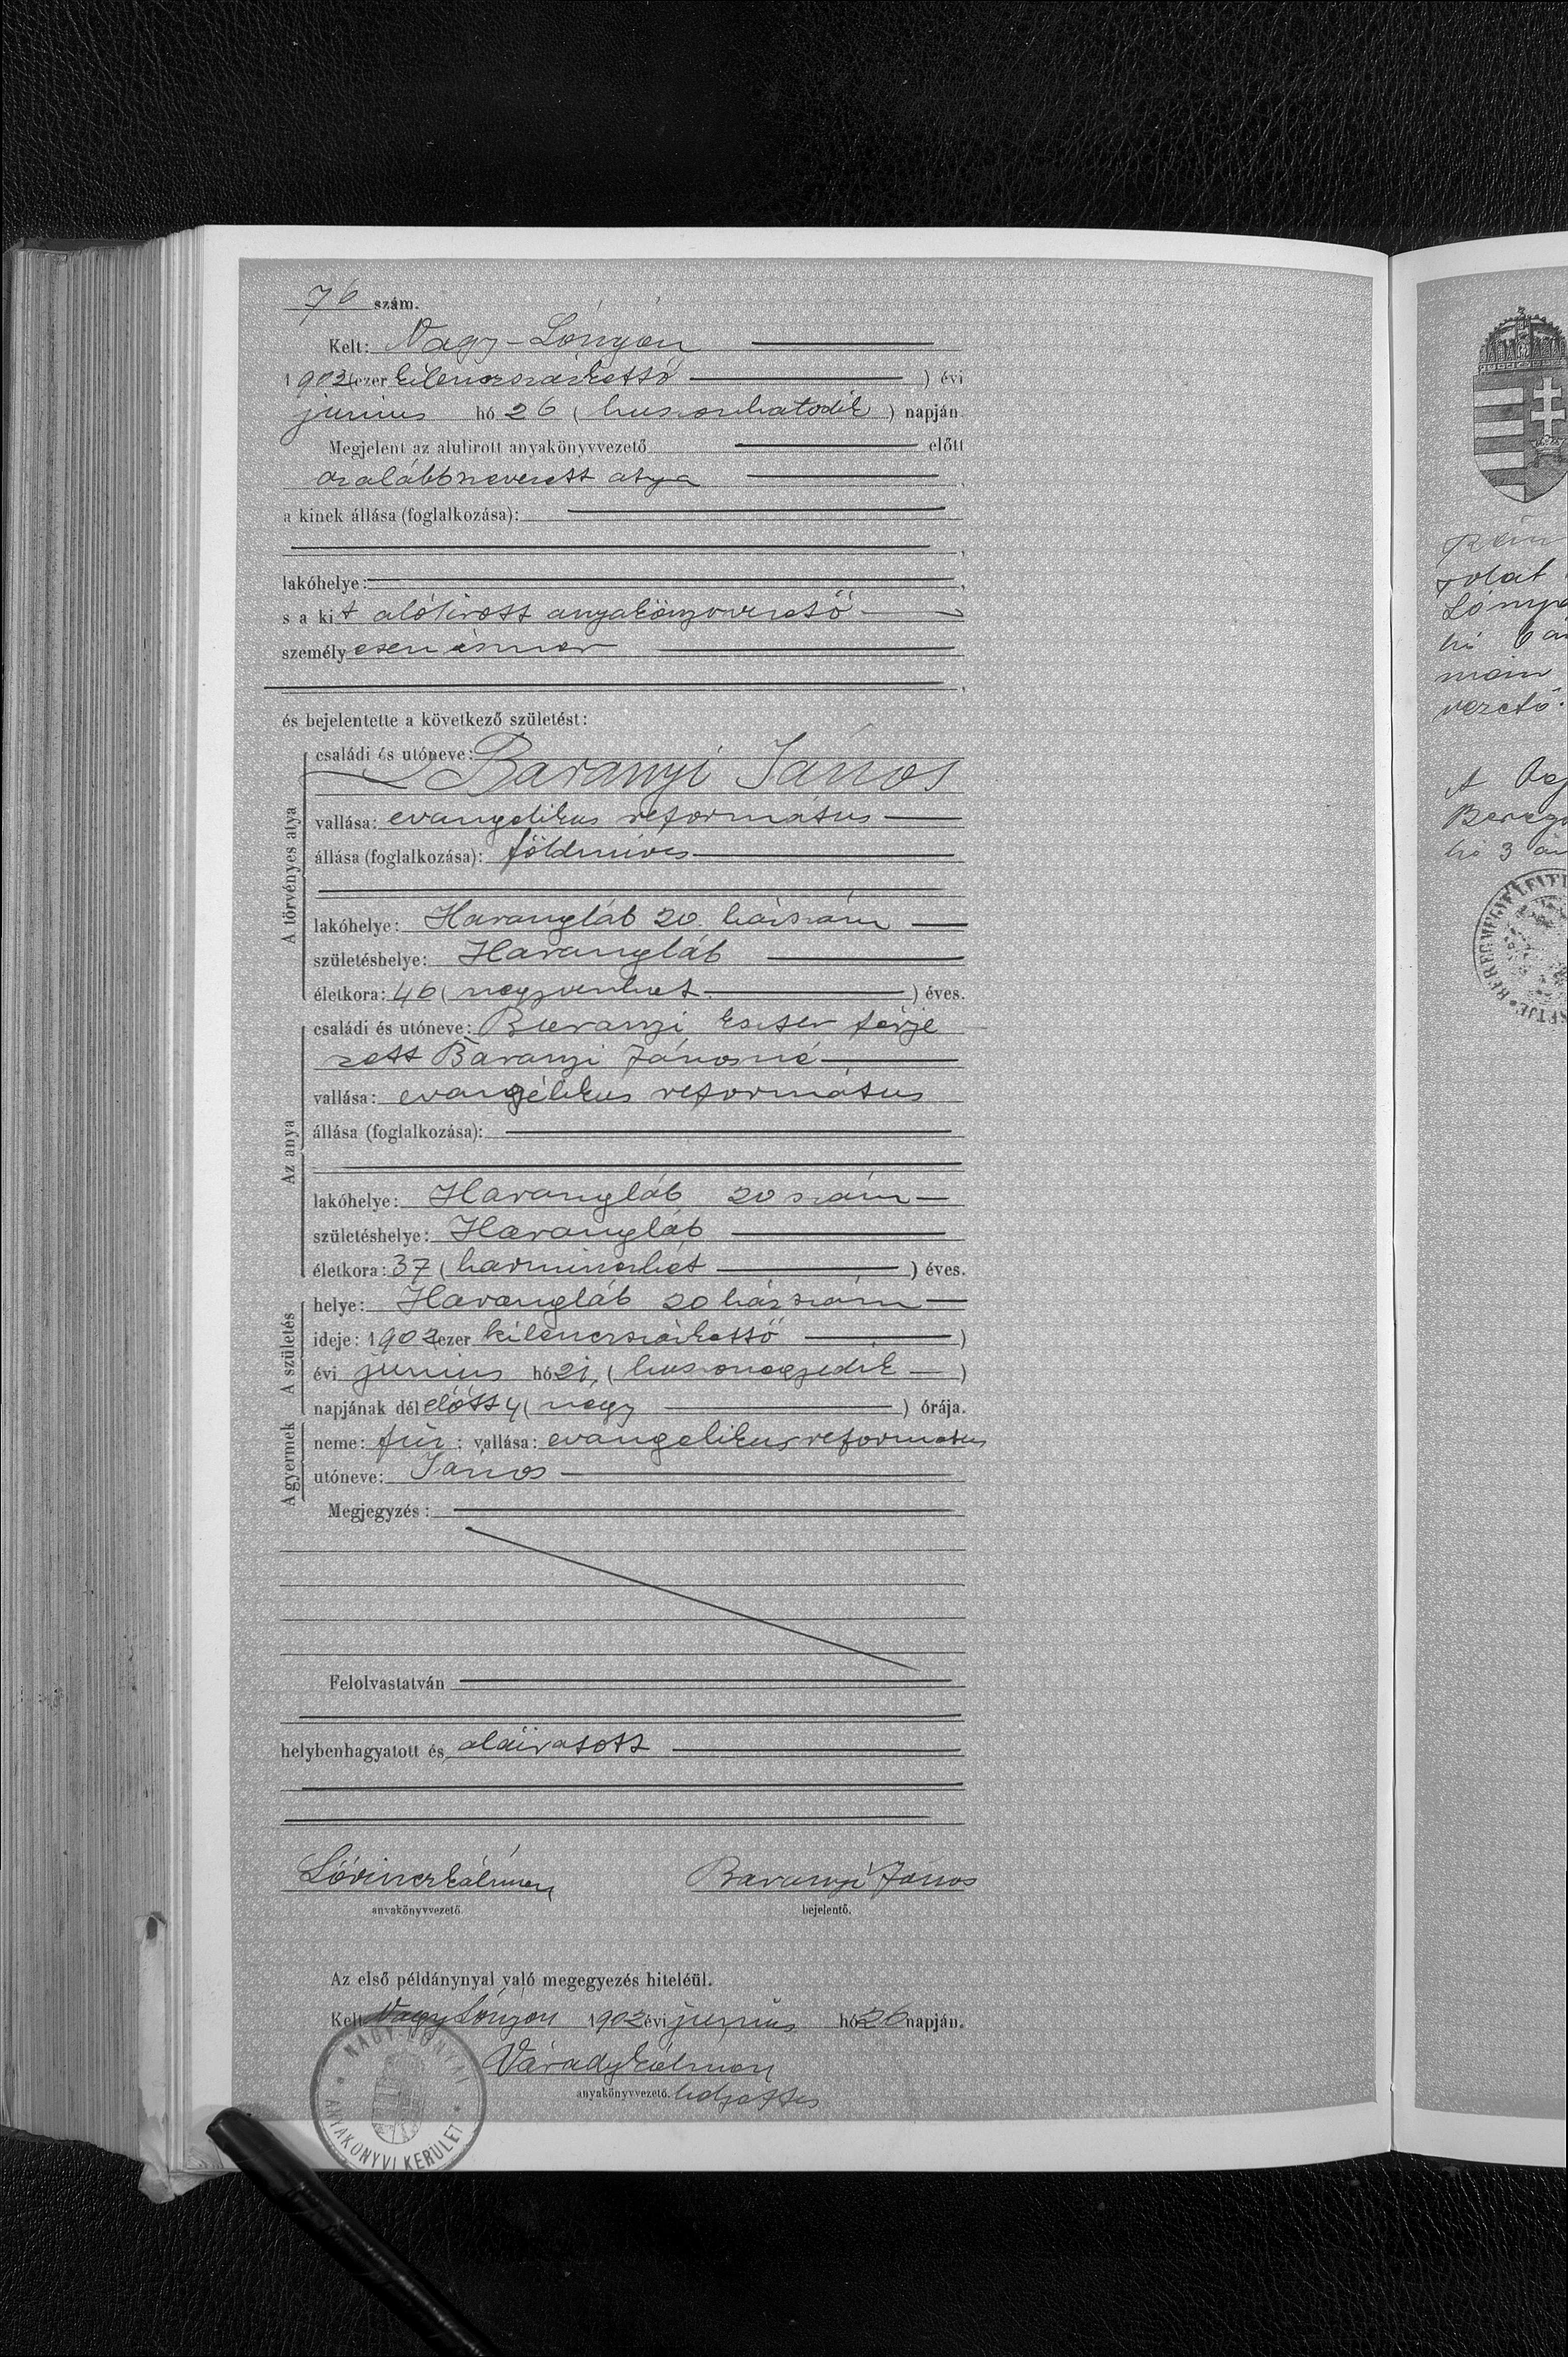 76 szám.
Kelt: Nagy-Lónyán
1902 (ezer kilenczszázkettő ) évi
junius hó 26 (huszonhatodik) napján.
Megjelent az alulirott anyakönyvvezető előtt
az alább nevezett atya
a kinek állása (foglalkozása):
lakóhelye:
s a kit alólirott anyakönyvvezető
személyesen ismer
és bejelentette a következő születést:
A törvényes atya
családi és utóneve:
Baranyi János
vallása: evangelikus református
állása (foglalkozása): földmives
lakóhelye: Harangláb 20. házszám
születéshelye: Harangláb
életkora: 46 (negyvenhat ) éves.
Az anya
családi és utóneve: Buranyi Eszter férje
zett Baranyi Jánosné
vallása: evangélikus református
állása (foglalkozása):
lakóhelye: Harangláb 20 szám
születéshelye: Harangláb
életkora: 37 (harminczhét ) éves.
A születés
helye: Harangláb 20 házszám
ideje: 1902 (ezer kilenczszázkettő )
évi junius hó 21. (huszonegyedik )
napjának dél előtt 4 (négy ) órája.
A gyermek
neme: fiú; vallása: evangelikus reformatus
utóneve: János
Megjegyzés:
Felolvastatván
helybenhagyatott és aláiratott
Lőrincz Kálmán Baranyi János
anyakönyvvezető. bejelentő.
Az első példánynyal való megegyezés hiteléül.
Kelt Nagy Lónyán 1902 évi junius hó 26 napján.
Várady Kálmán
anyakönyvvezető. helyettes
NAGY LÓNYAI
ANYAKÖNYVI KERÜLET
Lónya
vezető.
A
Bereg
hó 3 án
BEREGMEGYE LEVÉLT